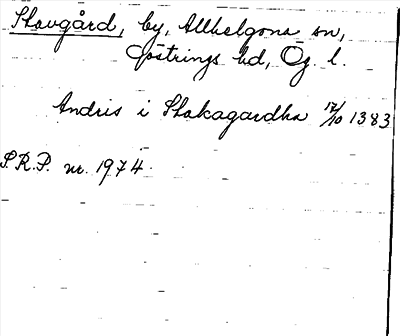 Skougård, by, Allhelgona sn,
Göstrings hd, Ög. l.
Andris i Skakagardha 17/10 1383
S.R.P. nr. 1974.